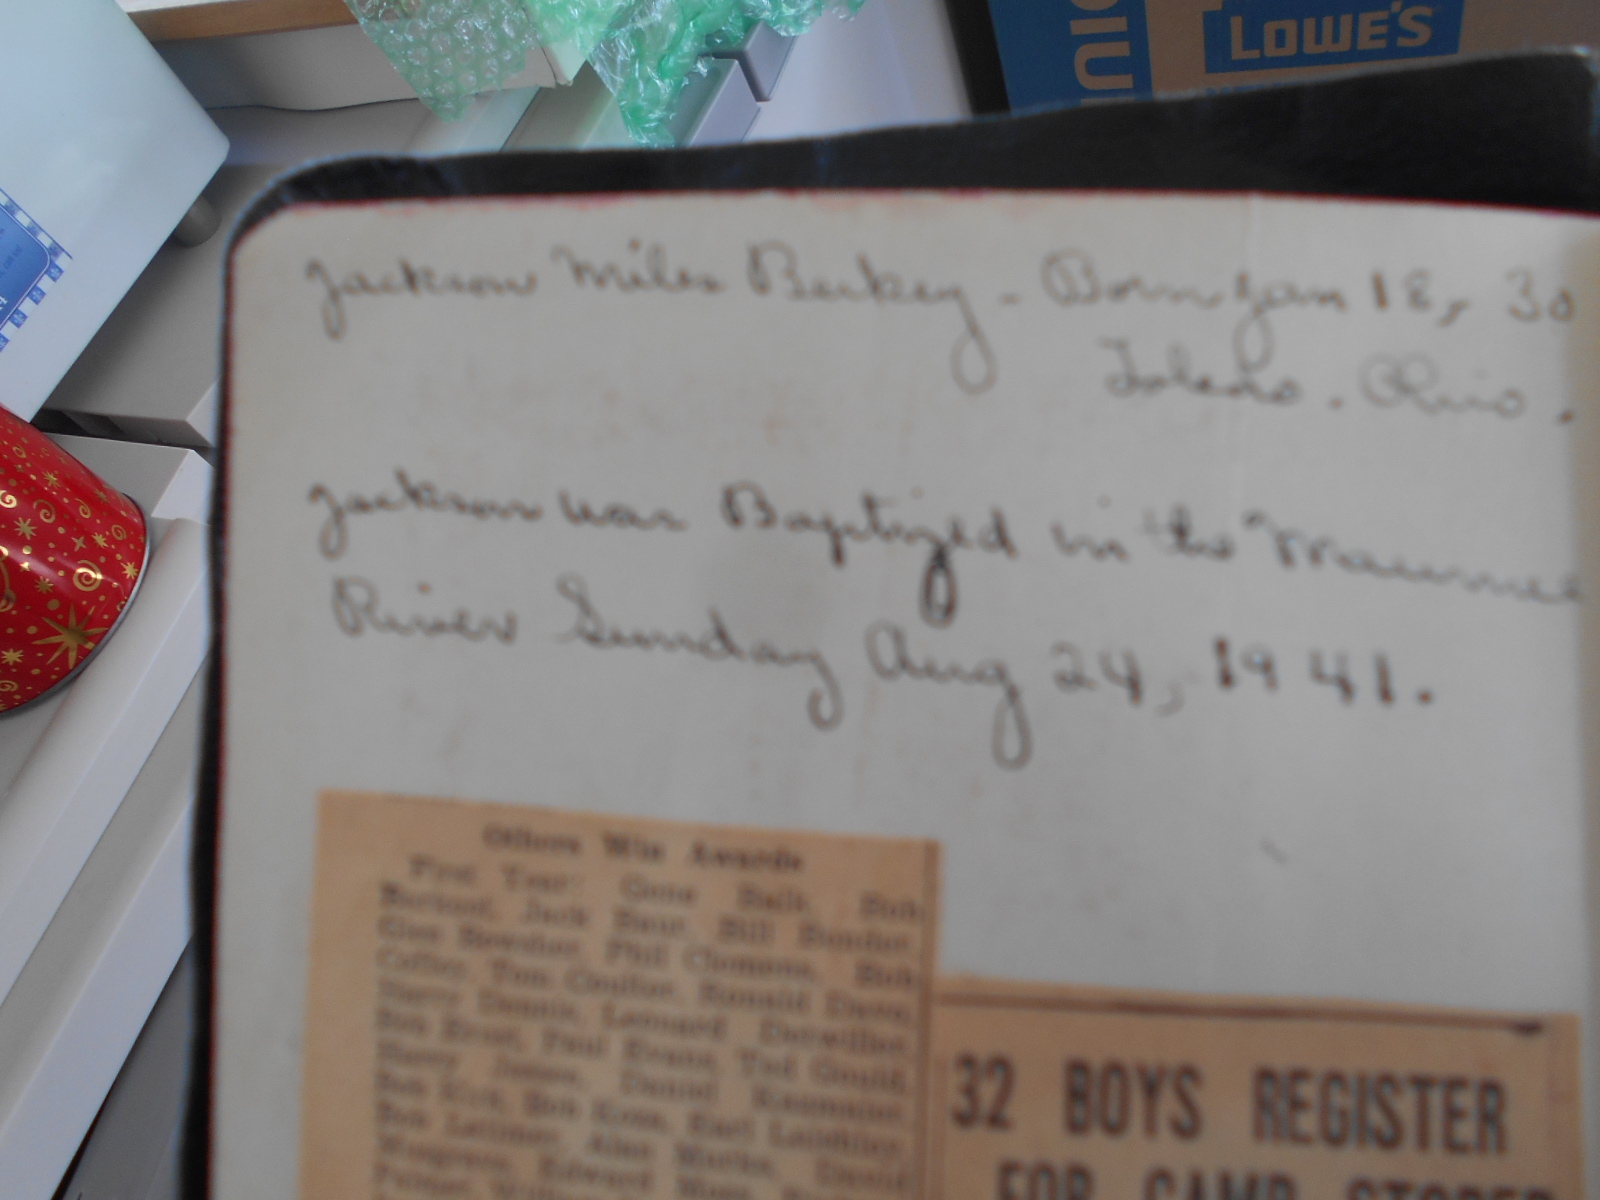 LOWE'S
Jackson Miles Berkey - Born Jan 18, 30
Toledo. Ohio.
Jackson was Baptized in the Maumee
River Sunday Aug 24, 1941.
Others Win Awards
First Year: Gene Balk, Bob
Jack Baur, Bill Bender,
Glen Bowsher, Phil Clemens, Bob
Tom Coulter, Ronald
Harry Dennis, Leonard Detwiler,
Paul Evans, Ted Gould,
Harry James, Daniel
Bob Kirk, Bob Earl
Bob Latimer, Alan David
Edward
32 BOYS REGISTER
FOR CAMP